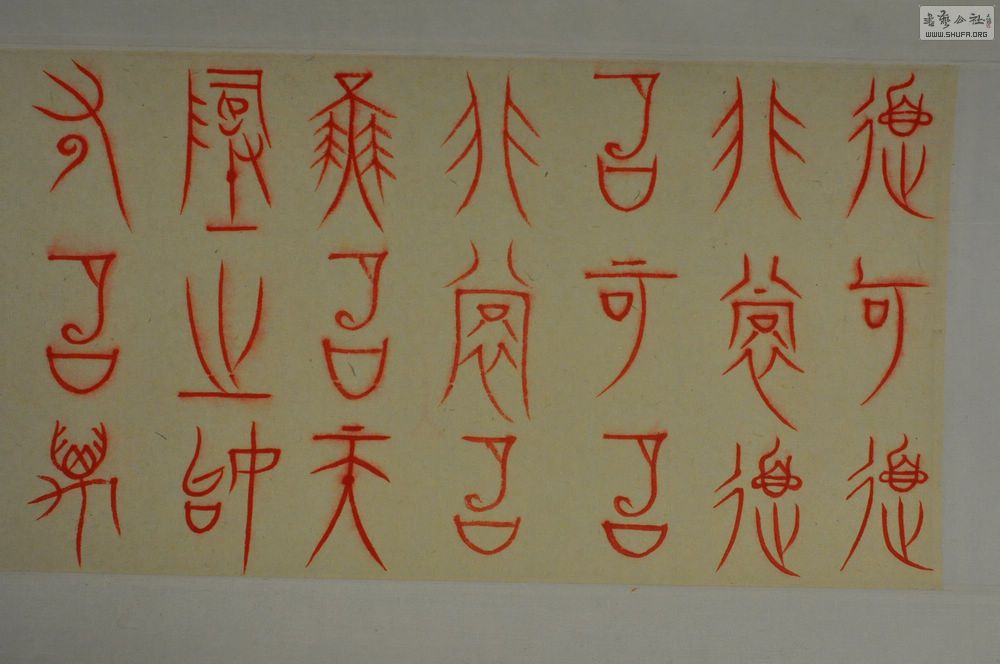 道可道
非常道
名可名
非常名
無名天
地之始
有名萬
書藝公社
WWW.SHUFA.ORG